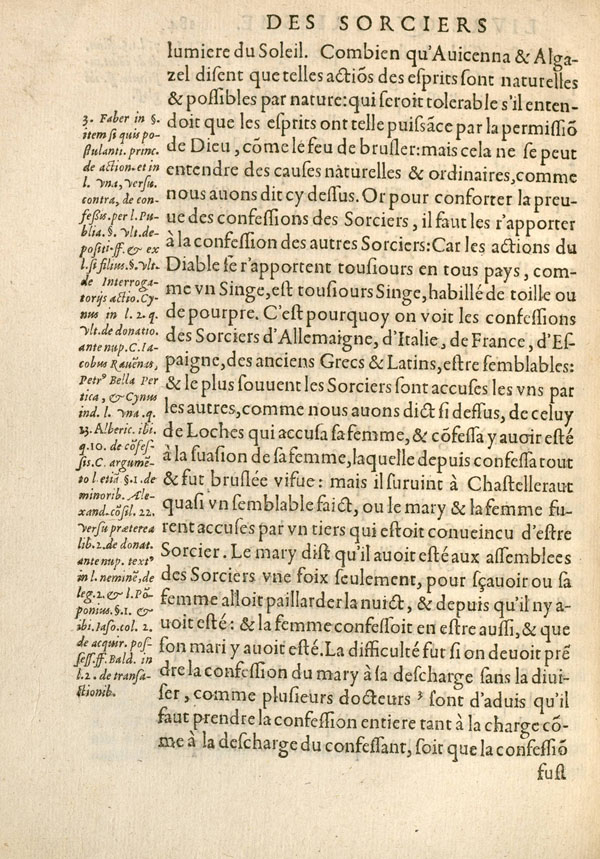 DES SORCIERS
lumiere du Soleil. Combien qu'Auicenna & Alga-
zel disent que telles actiõs des esprits sont naturelles
& possibles par nature: qui seroit tolerable s'il enten-
doit que les esprits ont telle puissãce par la permissiõ
de Dieu, cõme le feu de brusler: mais cela ne se peut
entendre des causes naturelles & ordinaires, comme
nous auons dit cy dessus. Or pour conforter la preu-
ue des confessions des Sorciers, il faut les r'apporter
à la confession des autres Sorciers: Car les actions du
Diable se r'apportent tousiours en tous pays, com-
me vn Singe, est tousiours Singe, habillé de toille ou
de pourpre. C'est pourquoy on voit les confessions
des Sorciers d'Allemaigne, d'Italie, de France, d'Es-
paigne, des anciens Grecs & Latins, estre semblables:
& le plus souuent les Sorciers sont accuses les vns par
les autres, comme nous auons dict si dessus, de celuy
de Loches qui accusa sa femme, & cõfessa y auoir esté
à la suasion de sa femme, laquelle depuis confessa tout
& fut bruslée vifue: mais il suruint à Chastelleraut
quasi vn semblable faict, ou le mary & la femme fu-
rent accuses par vn tiers qui estoit conueincu d'estre
Sorcier. Le mary dist qu'il auoit esté aux assemblees
des Sorciers vne foix seulement, pour sçauoir ou sa
femme alloit paillarder la nuict, & depuis qu'il n'y a-
uoit esté: & la femme confessoit en estre aussi, & que
son mari y auoit esté. La difficulté fut si on deuoit prẽ
dre la confession du mary à sa descharge sans la diui-
ser, comme plusieurs docteurs ³ sont d'aduis qu'il
faut prendre la confession entiere tant à la charge cõ-
me à la descharge du confessant, soit que la confessiõ
fust
3. Faber in §.
item si quis po-
stulanti. princ.
de action. et in
l. vna, versu.
contra, de con-
feßus. per l. Pu-
blia. §. vlt. de-
positi. ff. & ex
l. si filius. §. vlt.
de Interroga-
torijs actio. Cy-
nus in l. 2. q.
vlt. de donatio.
ante nup. C. Ia-
cobus Rauẽnas,
Petr⁹ Bella Per
tica, & Cynus
ind. l. vna. q.
13. Alberic. ibi.
q. 10. de cõfes-
sis. C. argumẽ-
to l. etiã §. 1. de
minorib. Ale-
xand. cõsil. 22.
versu præterea
lib. 2. de donat.
ante nup. text⁹
in l. neminẽ, de
leg. 2. & l. Põ-
ponius. §. 1. &
ibi. Iaso. col. 2.
de acquir. pos-
sess. ff. Bald. in
l. 2. de transa-
ctionib.